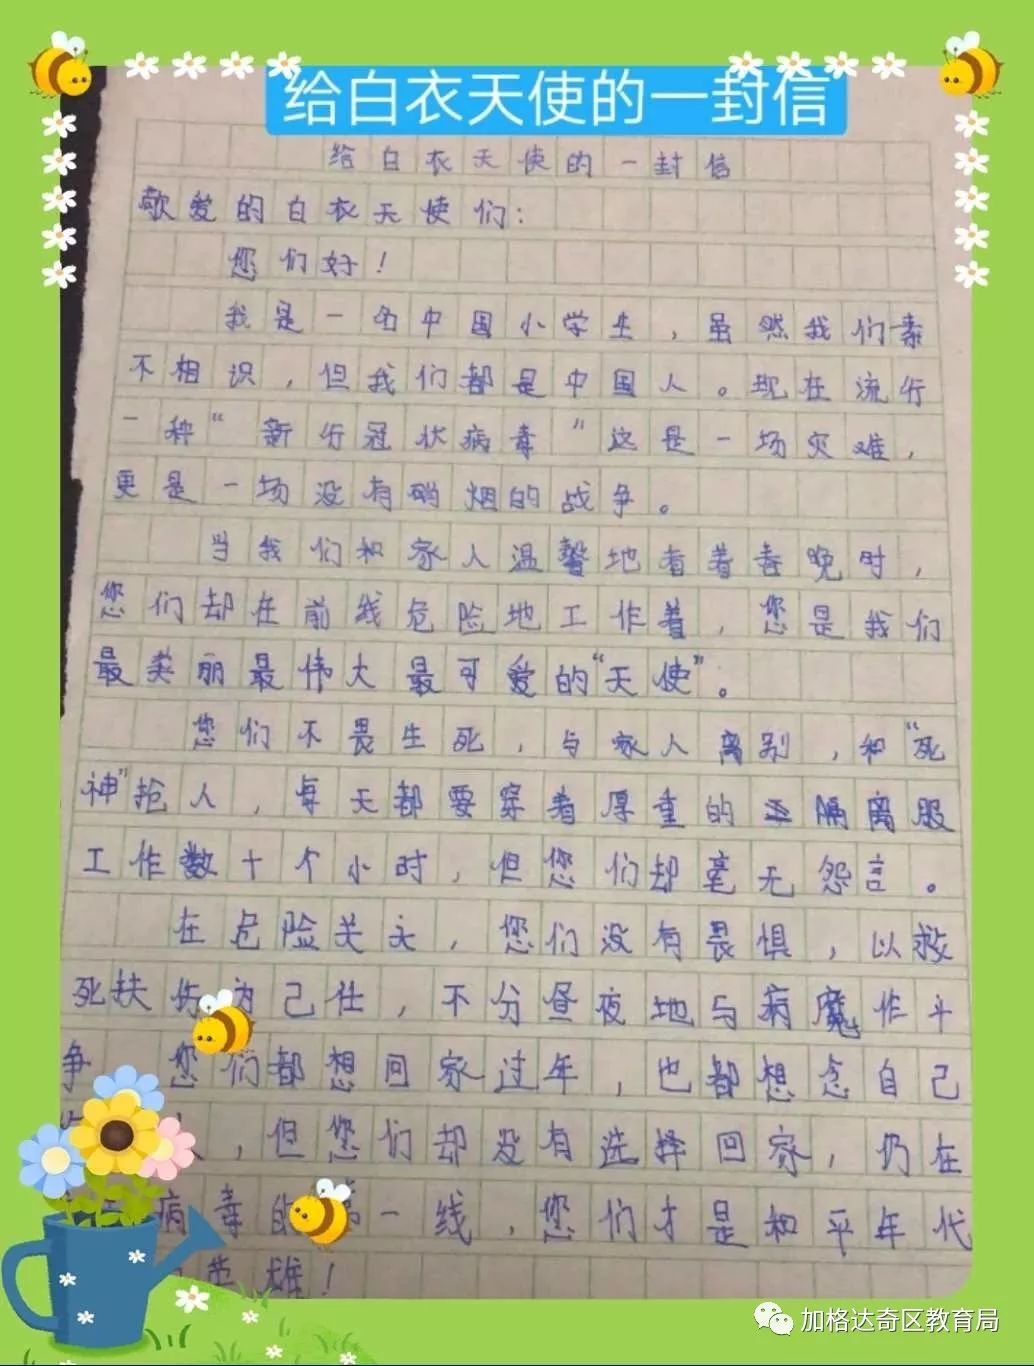 给白衣天使的一封信
给白衣天使的一封信
敬爱的白衣天使们：
您们好！
我是一名中国小学生，虽然我们素
不相识，但我们都是中国人。现在流行
一种“新行冠状病毒”这是一场灾难，
更是一场没有硝烟的战争。
当我们和家人温馨地看着春晚时，
您们却在前线危险地工作着，您是我们
最美丽最伟大最可爱的“天使”。
您们不畏生死，与家人离别，和“死
神”抢人，每天都要穿着厚重的隔离服
工作数十个小时，但您们却毫无怨言。
在危险关头，您们没有畏惧，以救
死扶伤为己任，不分昼夜地与病魔作斗
争 您们都想回家过年，也都想念自己
，但您们却没有选择回家，仍在
病毒的第一线，您们才是和平年代
英雄！
加格达奇区教育局